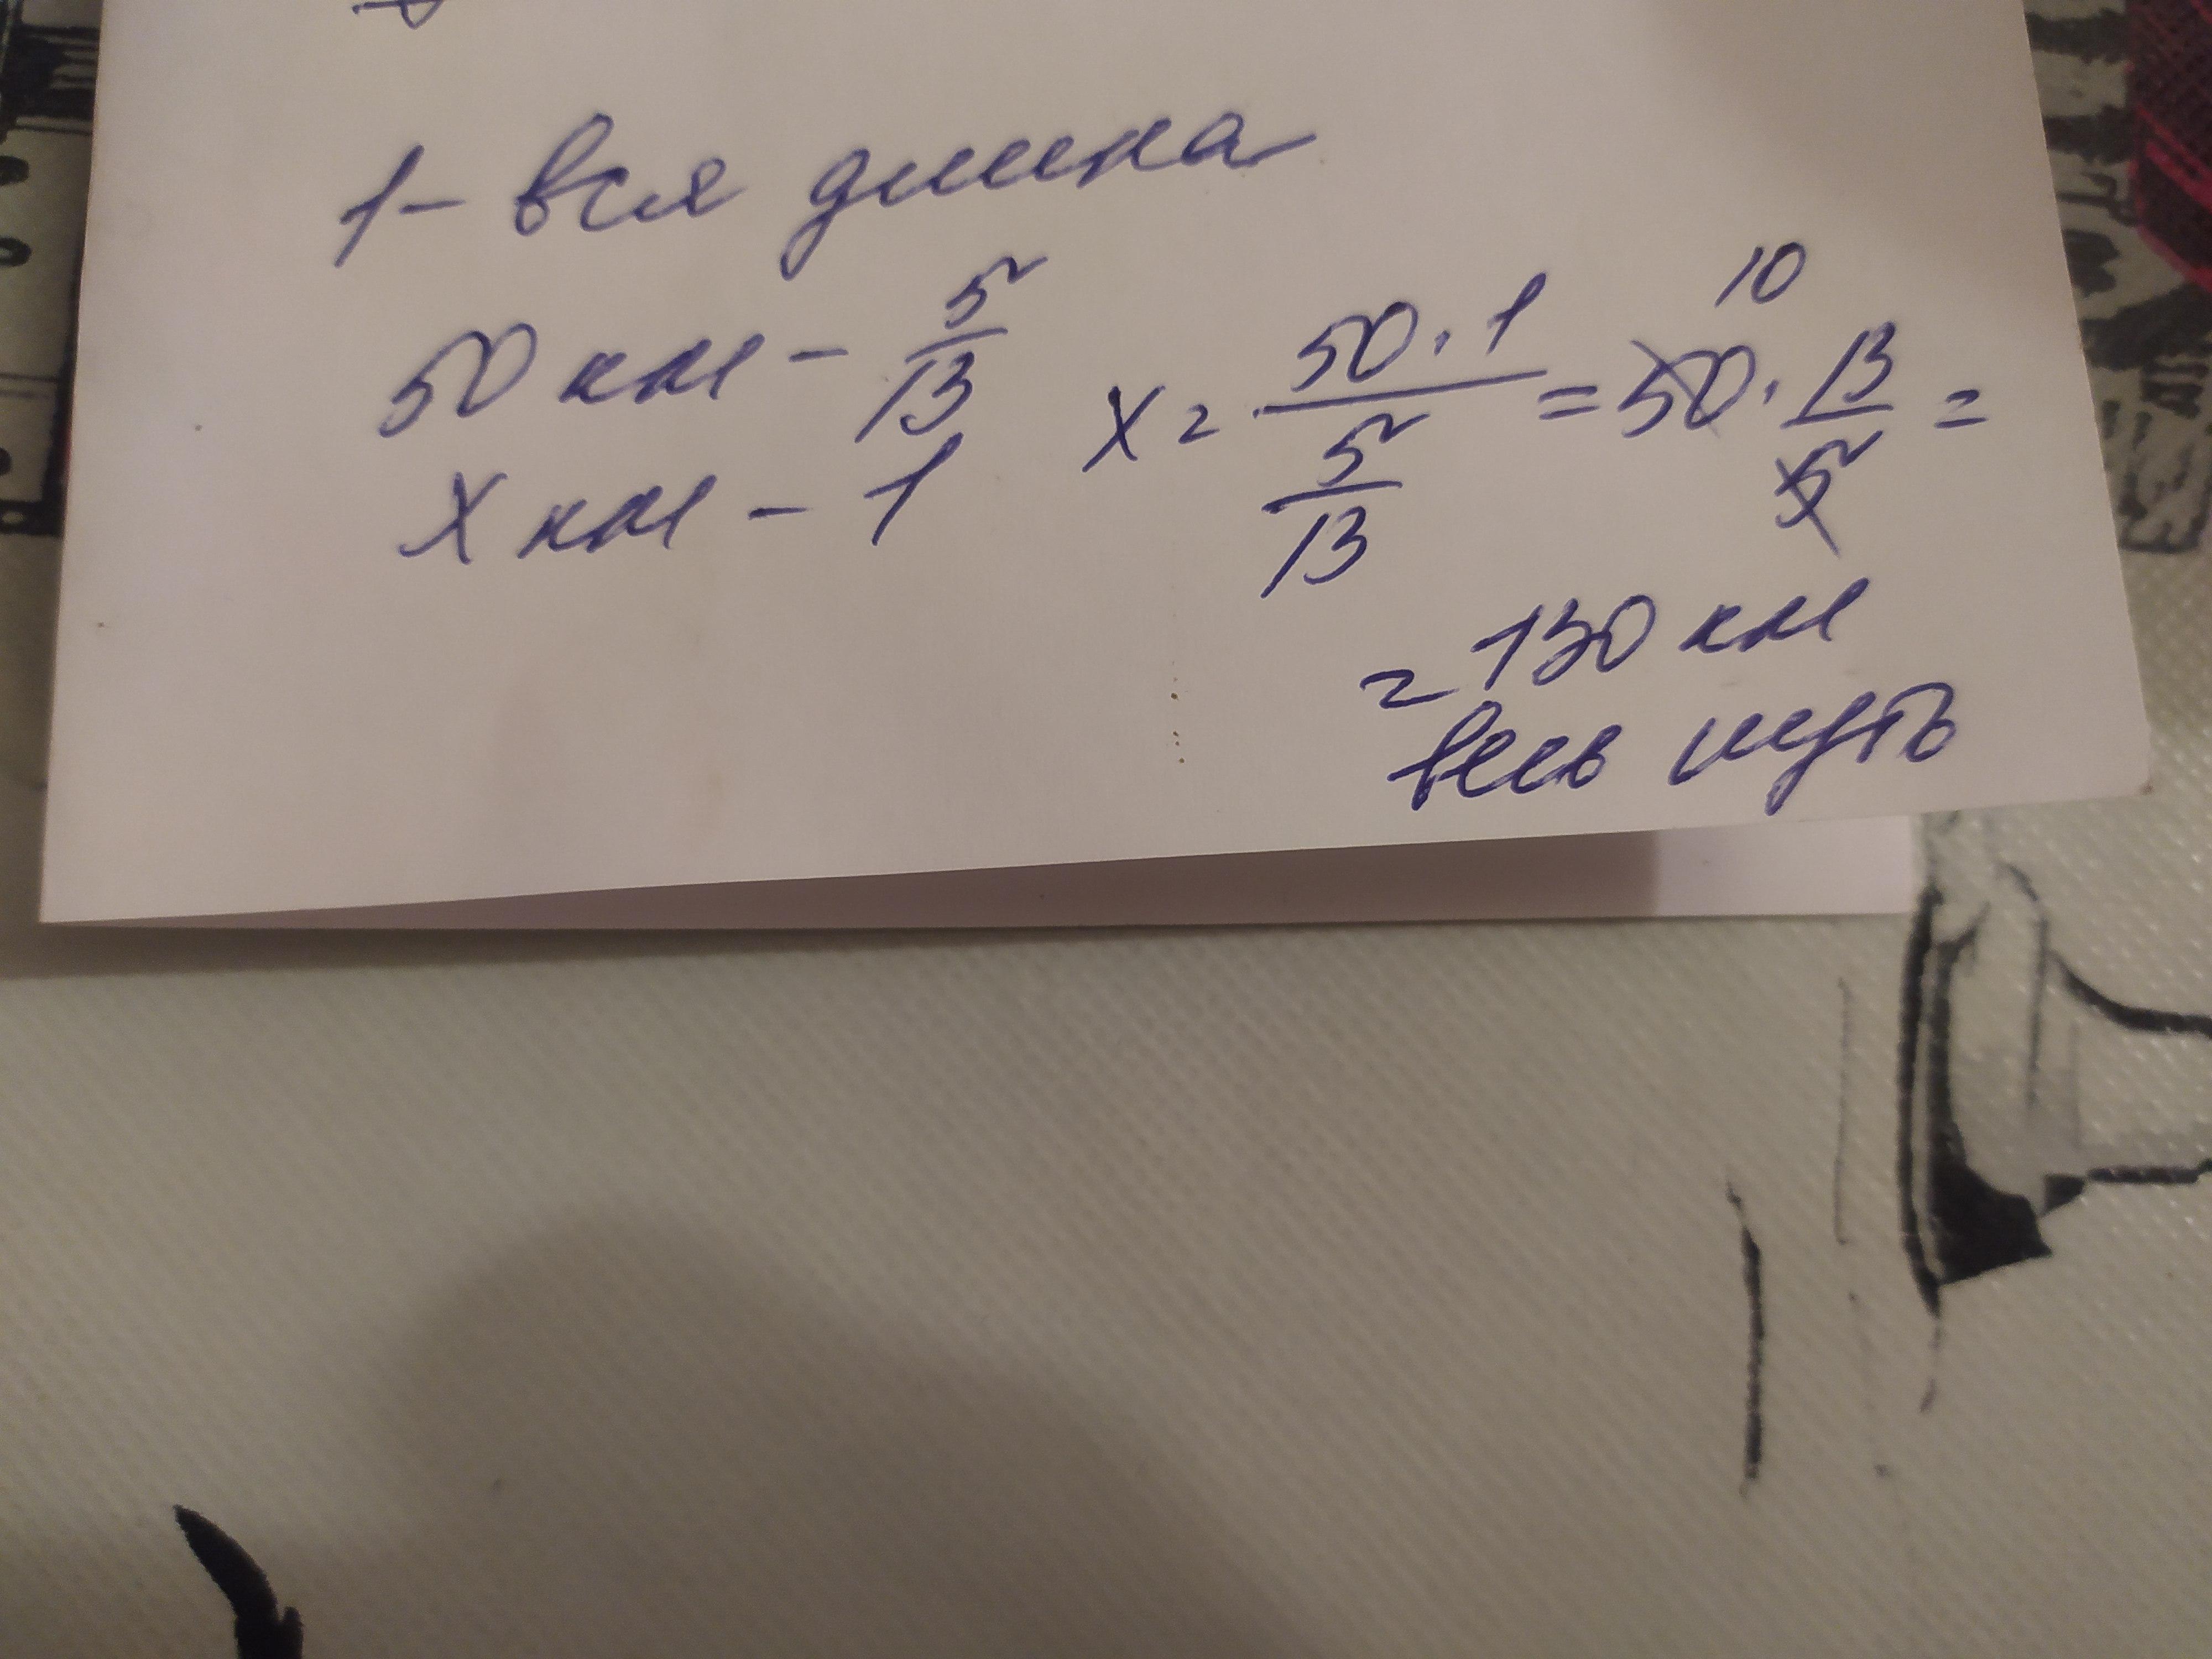 1 - вся длина
50 км - 5/13 x = 50 · 1 / 5/13 = 50 · 13/5 =
10
x км - 1
= 130 км
весь путь